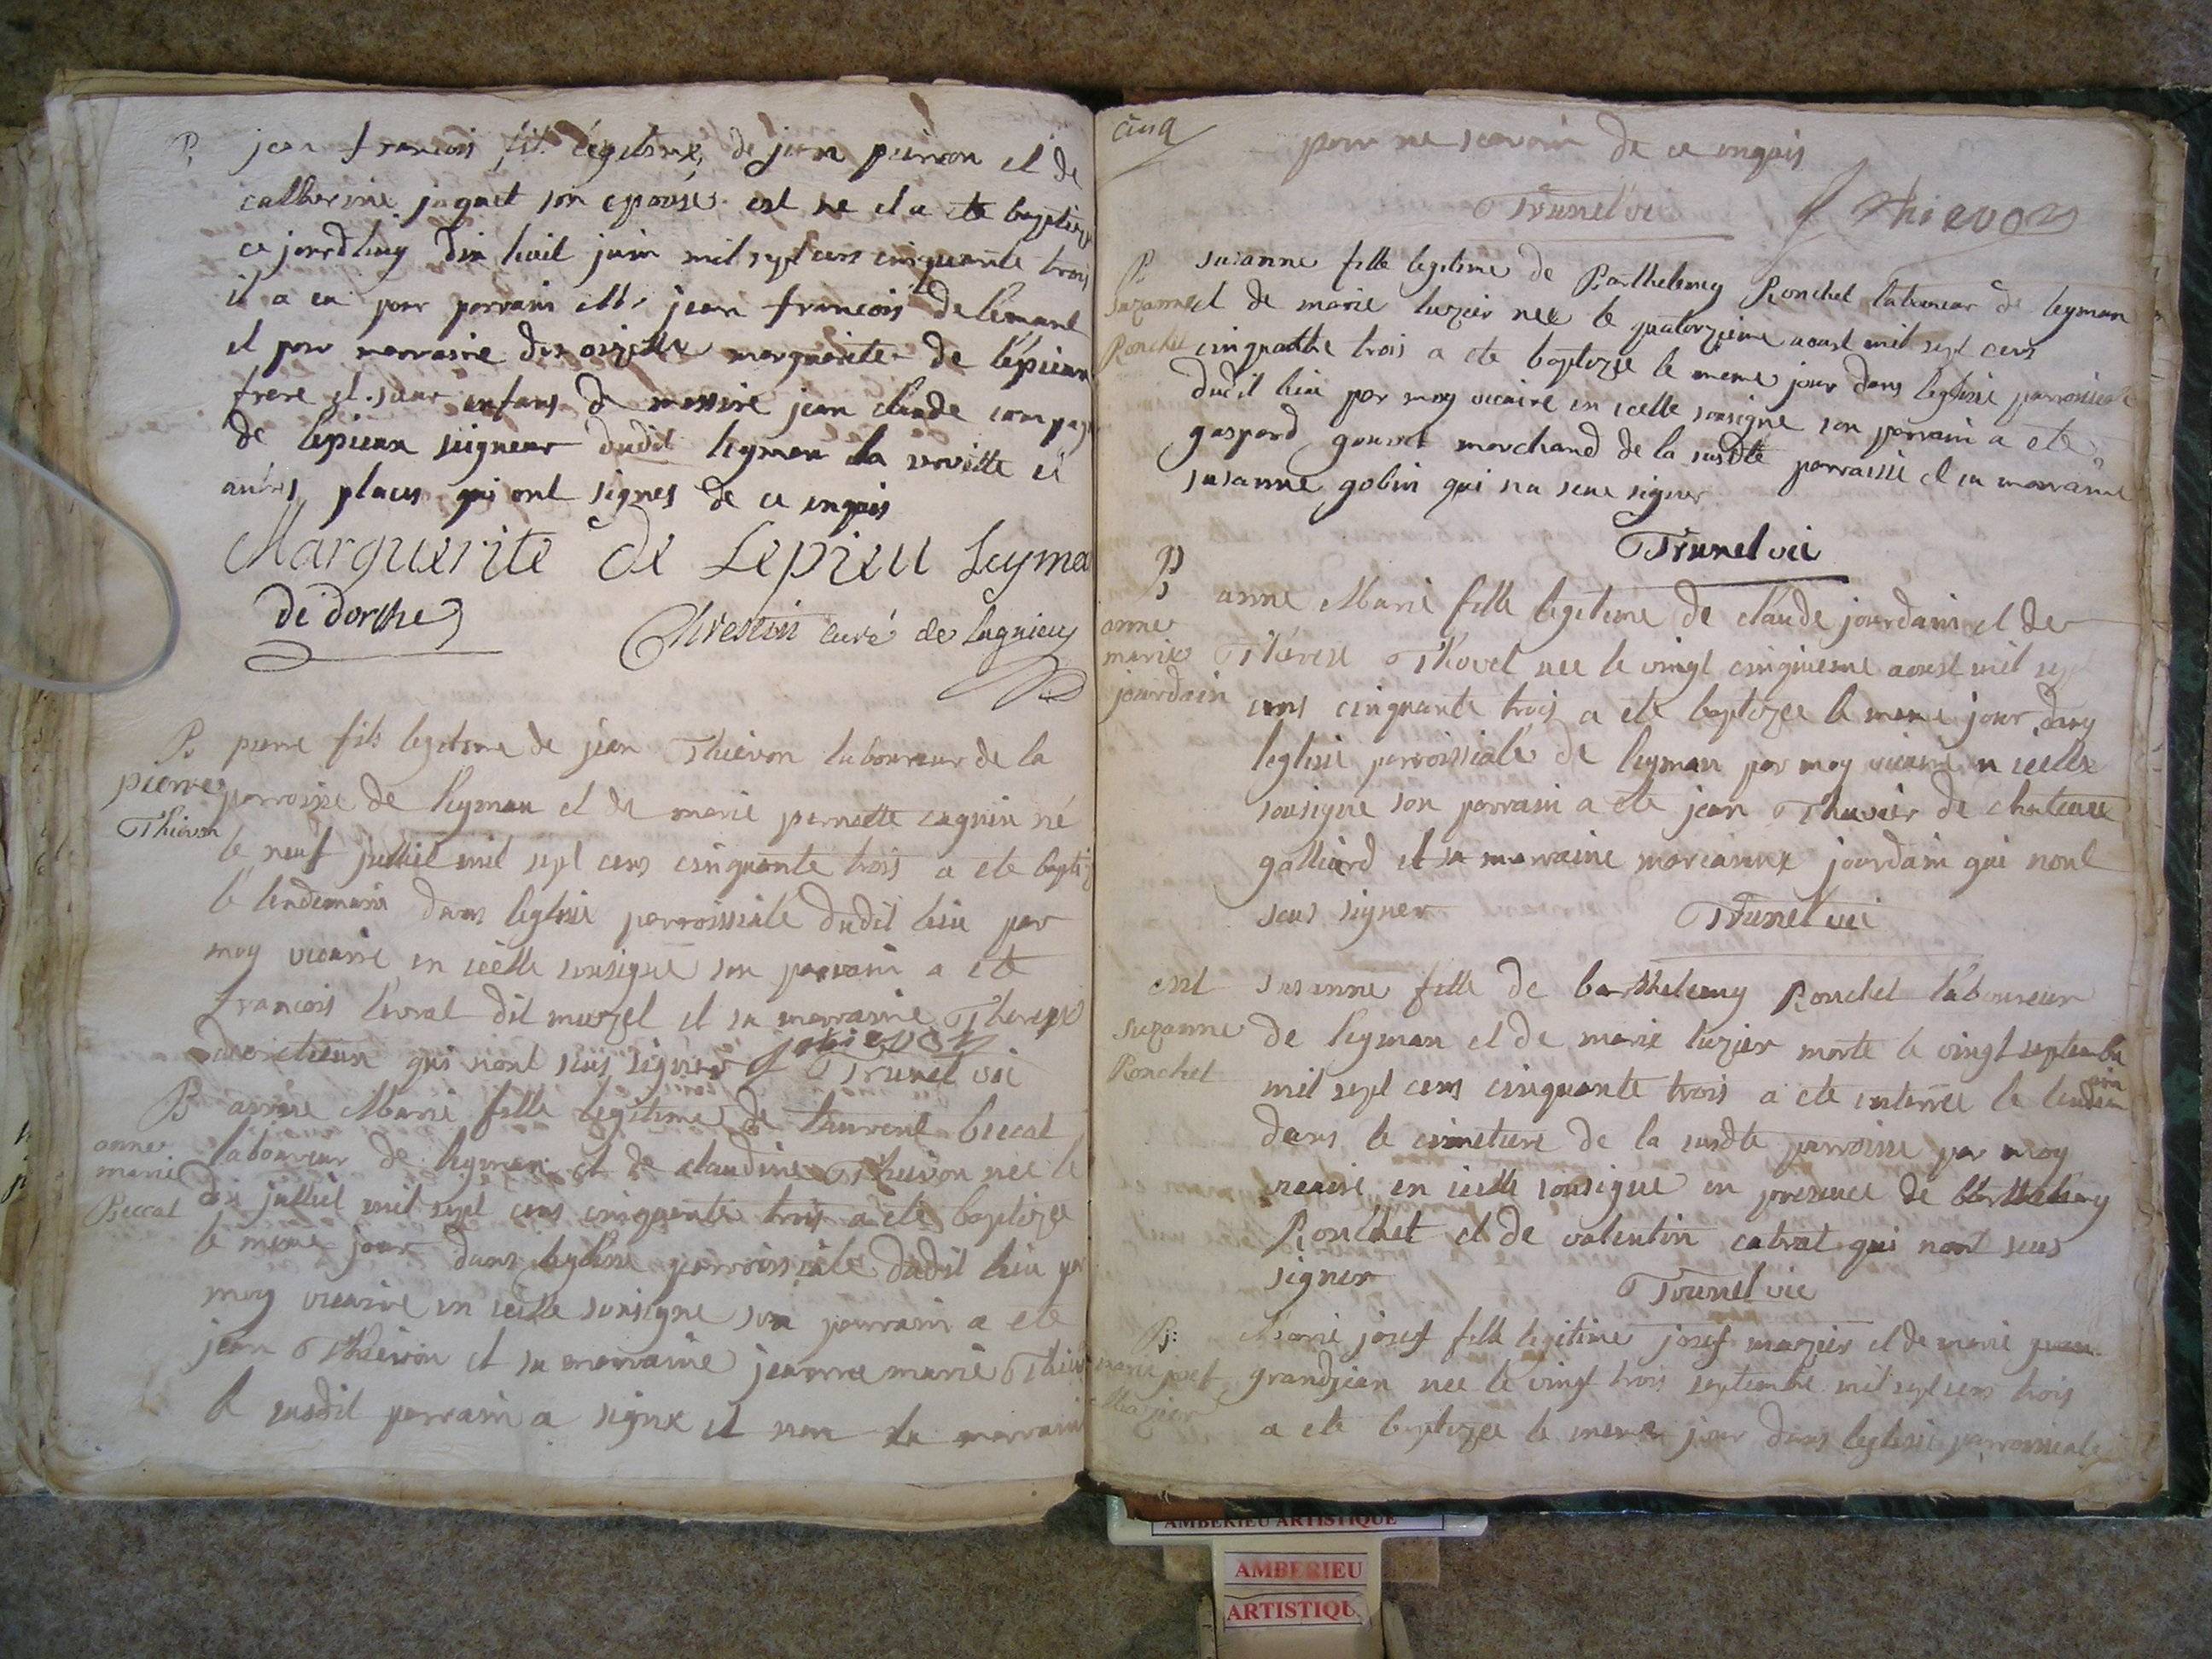 B
jean francois fils legitime de jean peirron et de
catherine jaquet son epouse est ne et a ete baptize
ce jourdhuy dix huit juin mil sept cens cinquante trois
il a eu pour parrain Mr jean francois de
et pour marraine marguerite de lepieux
frere et soeur enfans de messire jean claude
de lepieux seigneur dudit leyman la verette et
autres places qui ont signes de ce enquis
Marguerite de Lepieu Leyma
de dorche
Chrestin curé de lagnieu
B
pierre fils legitime de jean Thievon laboureur de la
pierre
Thievon
parroisse de leyman et de marie pernette cagnin né
le neuf julliet mil sept cens cinquante trois a ete bapti
le lendemain dans leglise parroissiale dudit lieu par
moy vicaire en icelle sousigné son parrain a ete
francois livrat dit muzel et sa marraine Therese
qui nont seus signer j thievon Trunel vic
B
anne Marie fille legitime de laurent beccat
anne
marie
Beccat
laboureur de leyman et de claudine Thievon nee le
dix julliet mil sept cens cinquante trois a ete baptizee
le meme jour dans leglise parroissiale dudit lieu par
moy vicaire en icelle sousigne son parrain a ete
jean Thievon et sa marraine jeanne marie
le susdit parrain a signe et non la marraine
cinq
pour ne scavoir de ce enquis
Trunel vic j thievon
B
suzanne
Ronchet
susanne fille legitime de Barthelemy Ronchet laboureur de leyman
et de marie luzier nee le quatorzieme aoust mil sept cens
cinquante trois a ete baptizee le meme jour dans leglise parroissiale
dudit lieu par moy vicaire en icelle sousigne son parrain a ete
gaspard gourret marchand de la susdte parroisse et sa marraine
susanne gobin qui na seue signer
Trunel vic
B
anne
marie
jourdain
anne Marie fille legitime de claude jourdain et de
Therese Thovet nee le vingt cinquiesme aoust mil sept
cens cinquante trois a ete baptizee le meme jour dans
leglise parroissiale de leyman par moy vicaire en icelle
sousigne son parrain a ete jean Thuvier de chateau
galliard et sa marraine marianne jourdain qui nont
seus signer Trunel vic
ent
suzanne
Ronchet
susanne fille de barthelemy Ronchet laboureur
de leyman et de marie luzier morte le vingt septembre
mil sept cens cinquante trois a ete enterree le lendemain
dans le cimetiere de la susdte parroisse par moy
vicaire en icelle sousigne en presence de barthelemy
Ronchet et de valentin cabrat qui nont seus
signer Trunel vic
B:
marie josef
Mazier
Marie josef fille legitime josef mazier et de marie
grandjean nee le vingt trois septembre mil sept cens trois
a ete baptizee le meme jour dans leglise parroissiale
AMBERIEU ARTISTIQUE
AMBERIEU
ARTISTIQU